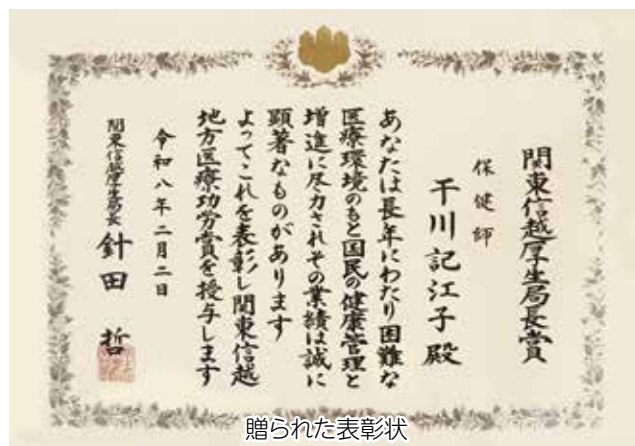 関東信越厚生局長賞
保健師
干川記江子殿
あなたは長年にわたり困難な
医療環境のもと国民の健康管理と
増進に尽力されその業績は誠に
顕著なものがあります
よってこれを表彰し関東信越
地方医療功労賞を授与します
令和八年二月二日
関東信越厚生局長 針田哲
贈られた表彰状